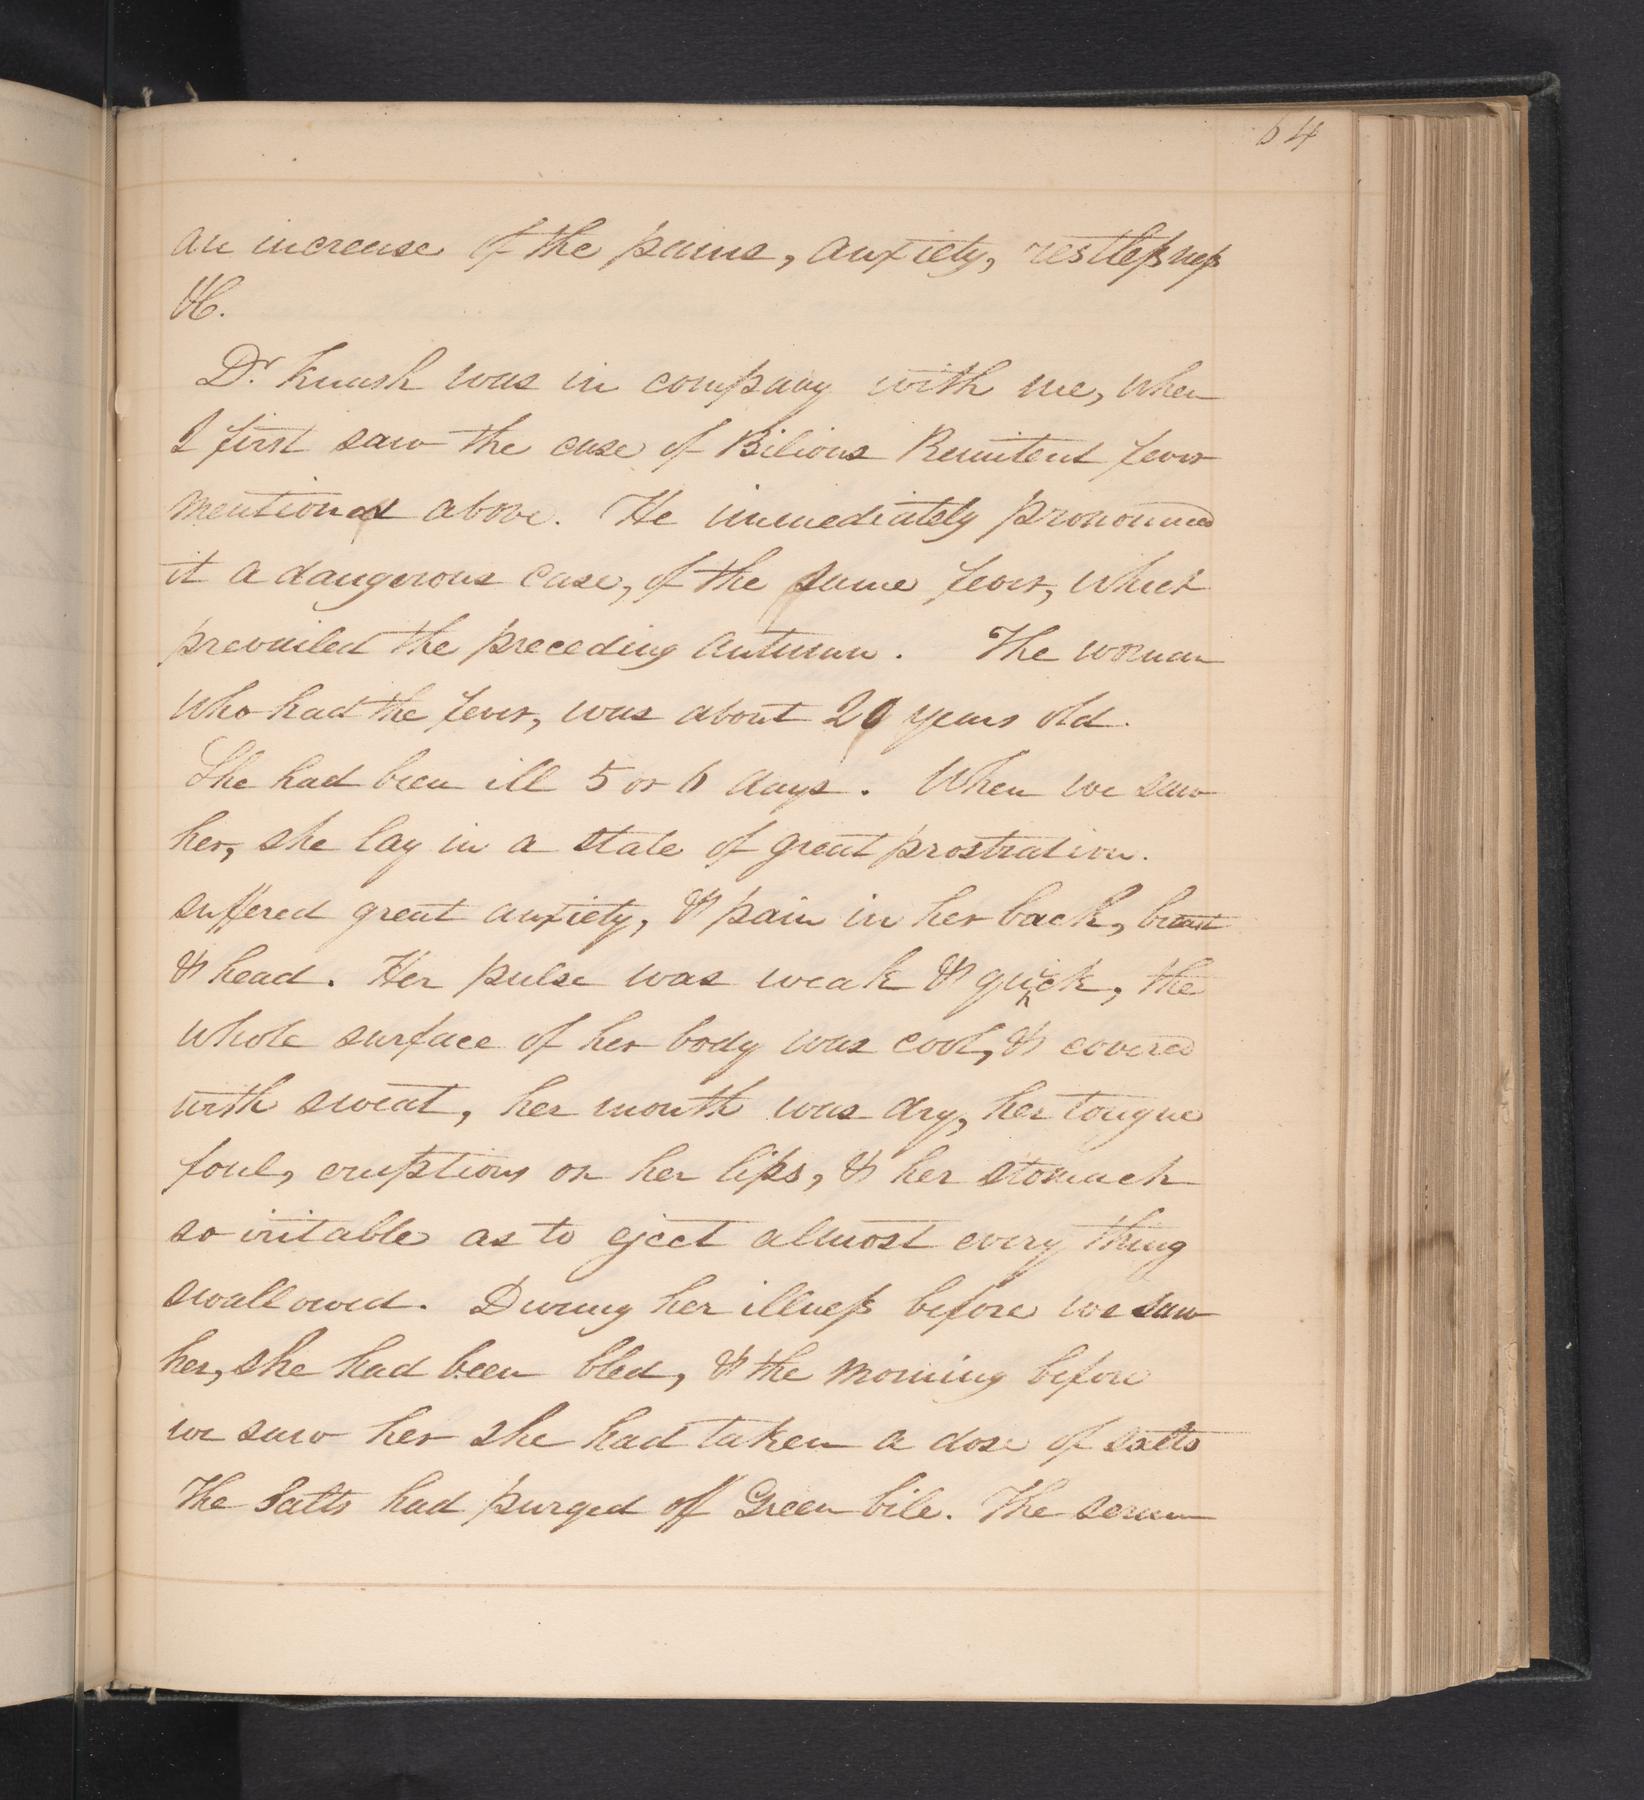 64
an increase of the pains, anxiety, restlessness
&C.
Dr. Knash was in company with me, when
I first saw the case of Bilious Remitent fever
mentioned above. He immediately pronounced
it a dangerous case, of the same fever, which
prevailed the preceding autumn. The woman
who had the fever, was about 20 years old.
She had been ill 5 or 6 days. When we saw
her, she lay in a state of great prostration.
suffered great anxiety, & pain in her back, breast
& head. Her pulse was weak & quick, the
whole surface of her body was cool, & covered
with sweat, her mouth was dry, her tongue
foul, eruptions on her lips, & her stomach
so iritable as to eject almost every thing
swallowed. During her illness before we saw
her, she had been bled, & the morning before
we saw her she had taken a dose of salts
The Salts had purged off Green bile. The serum